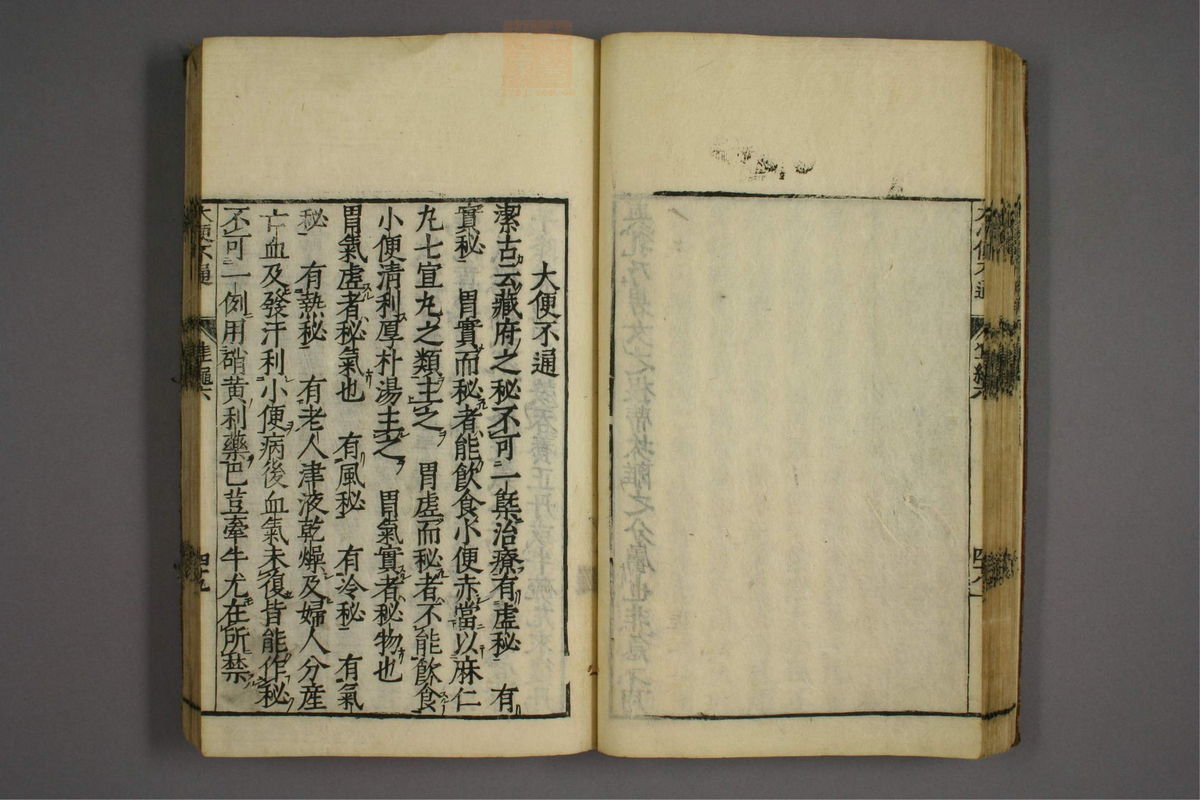 大便不通
潔古云藏府之秘不可一槩治療有虛秘 有
實秘 胃實而秘者能飲食小便赤當以麻仁
丸七宣丸之類主之 胃虛而秘者不能飲食
小便清利厚朴湯主之 胃氣實者秘物也
胃氣虛者秘氣也 有風秘 有冷秘 有氣
秘 有熱秘 有老人津液乾燥及婦人分産
亡血及發汗利小便病後血氣未復皆能作秘
不可一例用硝黄利藥巴荳牽牛尤在所禁